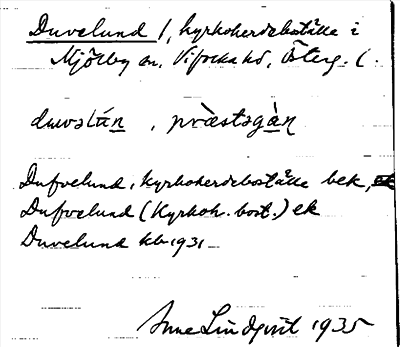 Duvelund /, kyrkoherdeboställe i
Mjölby sn, Vifolka hd, Österg. l.
duvəlún , præ̀stəgàn
Dufvelund, kyrkoherdeboställe bek,
Dufvelund (Kyrkoh. bost.) ek
Duvelund kb 1931
Arne Lindqvist 1935